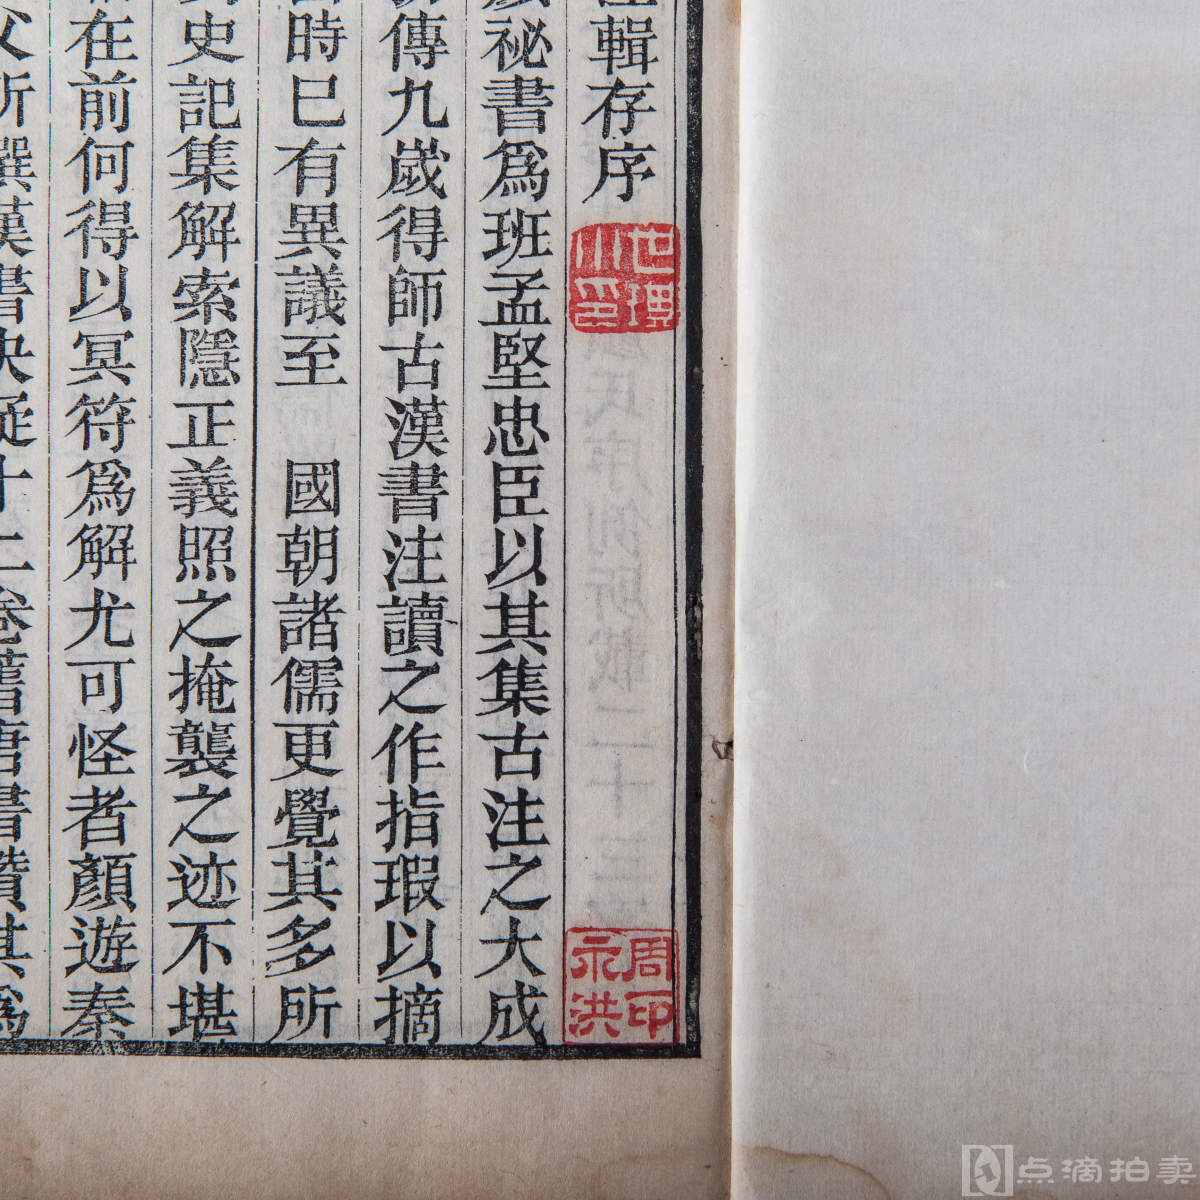 輯存序
祕書爲班孟堅忠臣以其集古注之大成
傳九歲得師古漢書注讀之作指瑕以摘
時已有異議至 國朝諸儒更覺其多所
史記集解索隱正義照之掩襲之迹不堪
在前何得以冥符爲解尤可怪者顏遊秦
父所撰漢書決疑十二卷舊唐書讚其爲
周印
永洪
点滴拍卖